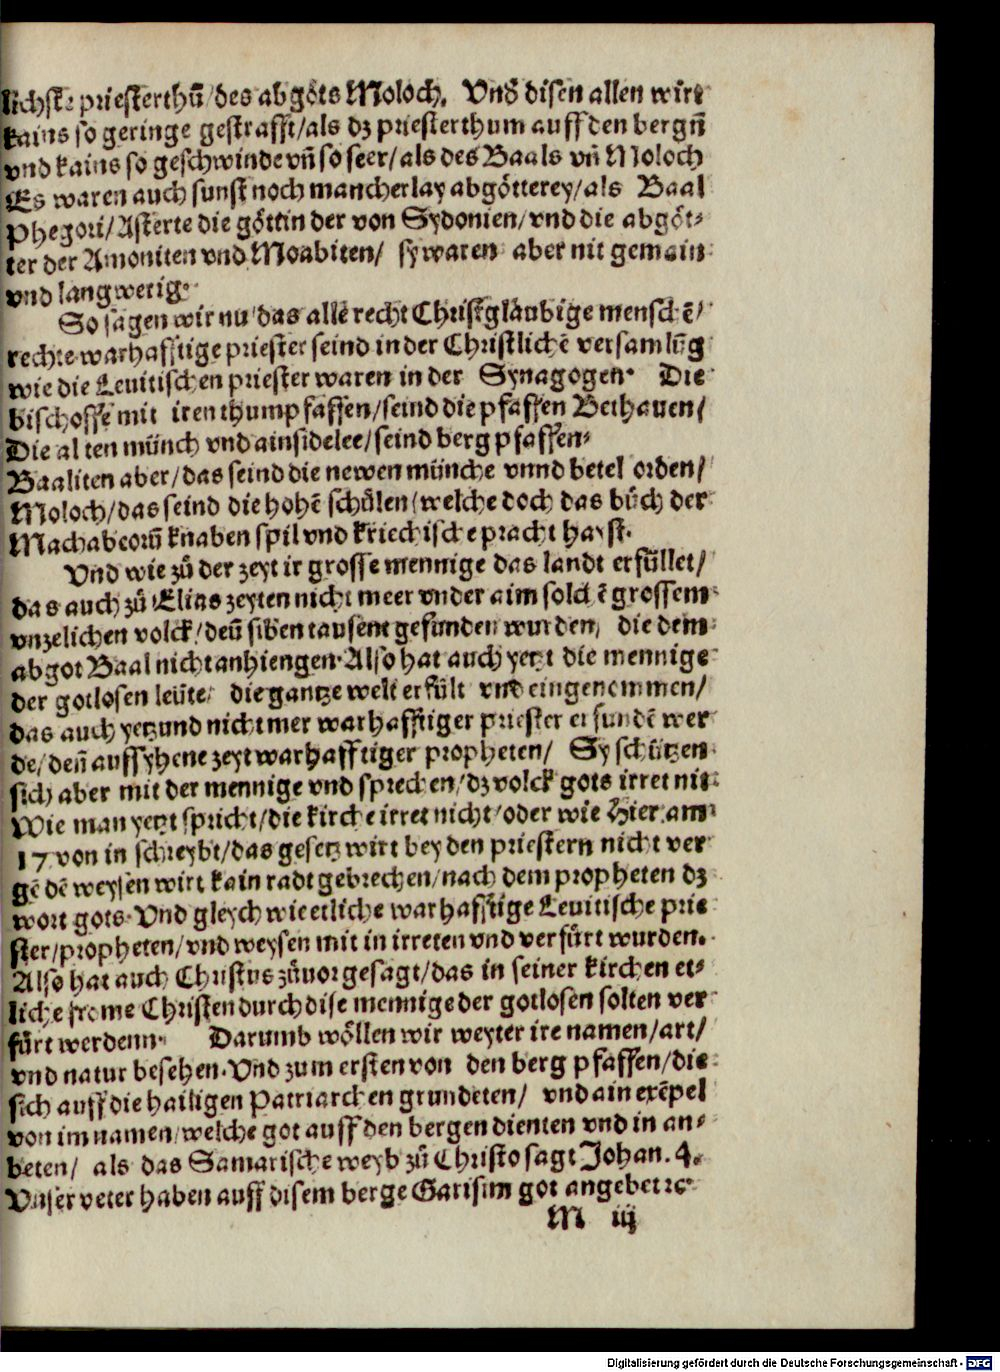 lichste priesterthū/des abgöts Moloch. Vnd disen allen wirt
kains so geringe gestrafft/als dz priesterthum auff den bergñ
vnd kains so geschwinde vñ so seer/als des Baals vñ Moloch
Es waren auch sunst noch mancherlay abgötterey/als Baal
Phegori/Asterte die göttin der von Sydonien/vnd die abgöt-
ter der Amoniten vnd Moabiten/ sy waren aber nit gemain
vnd langwerig.
So sagen wir nu das allē recht Christgläubige menschē/
rechte warhafftige priester seind in der Christlichē versamlūg
wie die Leuitischen priester waren in der Synagogen. Die
bischoffe mit iren thumpfaffen/seind die pfaffen Bethauen/
Die alten münch vnd ainsidelee/seind bergpfaffen.
Baaliten aber/das seind die newen münche vnnd betel orden/
Moloch/das seind die hohē schůlen/welche doch das bůch der
Machabeorū knaben spil vnd kriechische pracht hayst.
Vnd wie zů der zeyt ir grosse mennige das landt erfüllet/
das auch zů Elias zeyten nicht meer vnder aim solchē grossem
vnzelichen volck/deñ siben tausent gefunden wurden, die dem
abgot Baal nicht anhiengen. Also hat auch yetzt die mennige
der gotlosen leüte/ die gantze welt erfült vnd eingenommen/
das auch yetzund nicht mer warhafftiger priester erfundē wer
de/deñ auff yhene zeyt warhafftiger propheten/ Sy schützen
sich aber mit der mennige vnd sprechen/dz volck gots irret nit
Wie man yetzt spricht/die kirche irret nicht/oder wie Hieram
17 von in schreybt/das gesetz wirt bey den priestern nicht ver
gē dē weysen wirt kain radt gebrechen/nach dem propheten dz
wort gots. Vnd gleych wie etliche warhafftige Leuitische prie
ster/propheten/vnd weysen mit in irreten vnd verfürt wurden.
Also hat auch Christus zůuor gesagt/das in seiner kirchen et-
liche frome Christen durch dise mennige der gotlosen solten ver
fürt werdenn. Darumb wöllen wir weyter ire namen/art/
vnd natur besehen. Vnd zum ersten von den bergpfaffen/die
sich auff die hailigen Patriarchen grundeten/ vnd ain exēpel
von im namen/welche got auff den bergen dienten vnd in an-
beten/ als das Samarische weyb zů Christo sagt Johan. 4.
Vnser veter haben auff disem berge Garisim got angebet ꝛc.
M iij
Digitalisierung gefördert durch die Deutsche Forschungsgemeinschaft - DFG